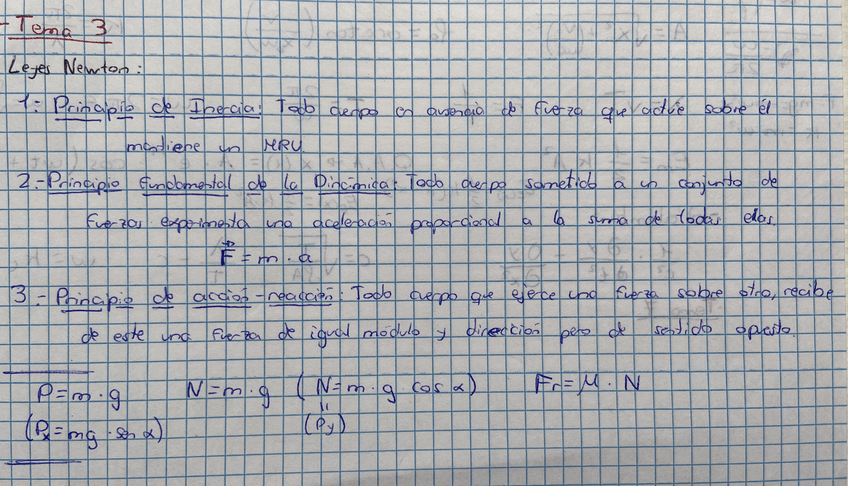 - Tema 3
Leyes Newton:
1.- Principio de Inercia: Todo cuerpo en ausencia de fuerza que actúe sobre él
mantiene un MRU
2.- Principio fundamental de la Dinámica: Todo cuerpo sometido a un conjunto de
fuerzas experimenta una aceleración proporcional a la suma de todas ellas.
F⃗ = m · a
3.- Principio de acción-reacción: Todo cuerpo que ejerce una fuerza sobre otro, recibe
de este una fuerza de igual módulo y dirección pero de sentido opuesto.
P = m · g N = m · g (N = m · g cos α) Fr = μ · N
(Px = mg · sen α) (Py)